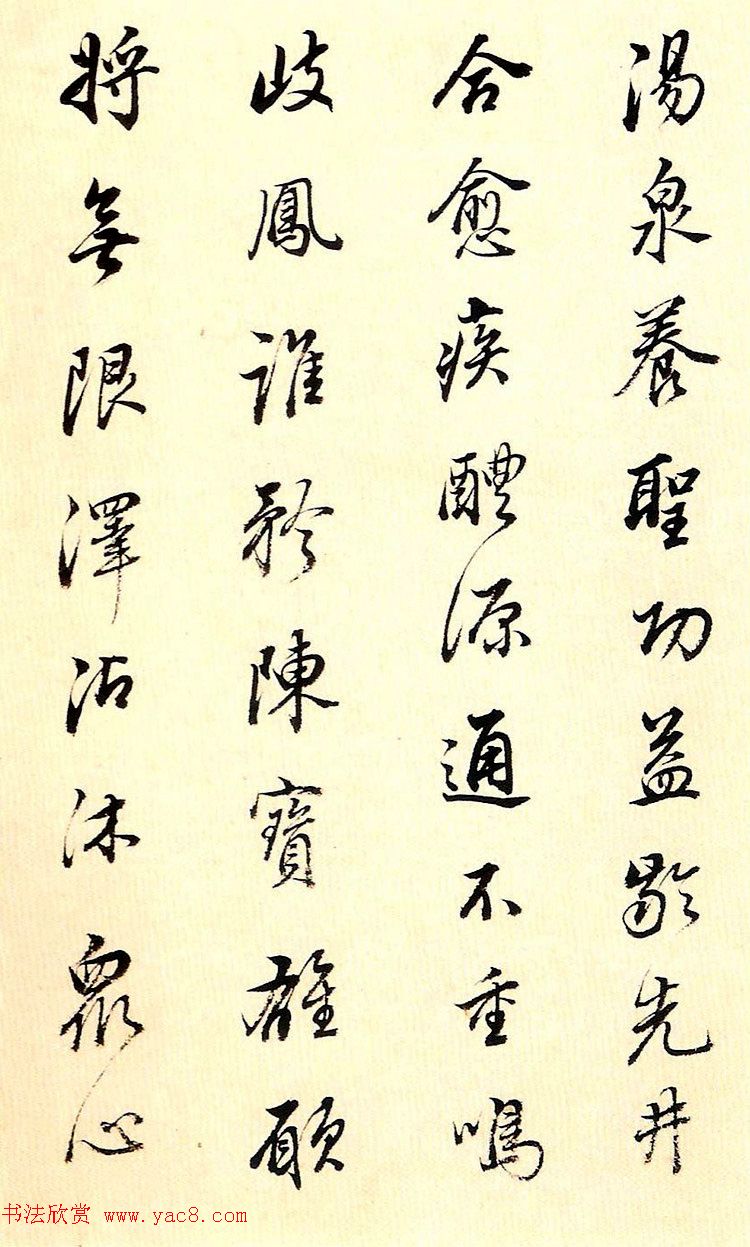 湯泉養聖功益齡先井
合愈疾醴源通不重鳴
岐鳳誰矜陳寶雄願
將無限澤沾沐衆心
书法欣赏 www.yac8.com